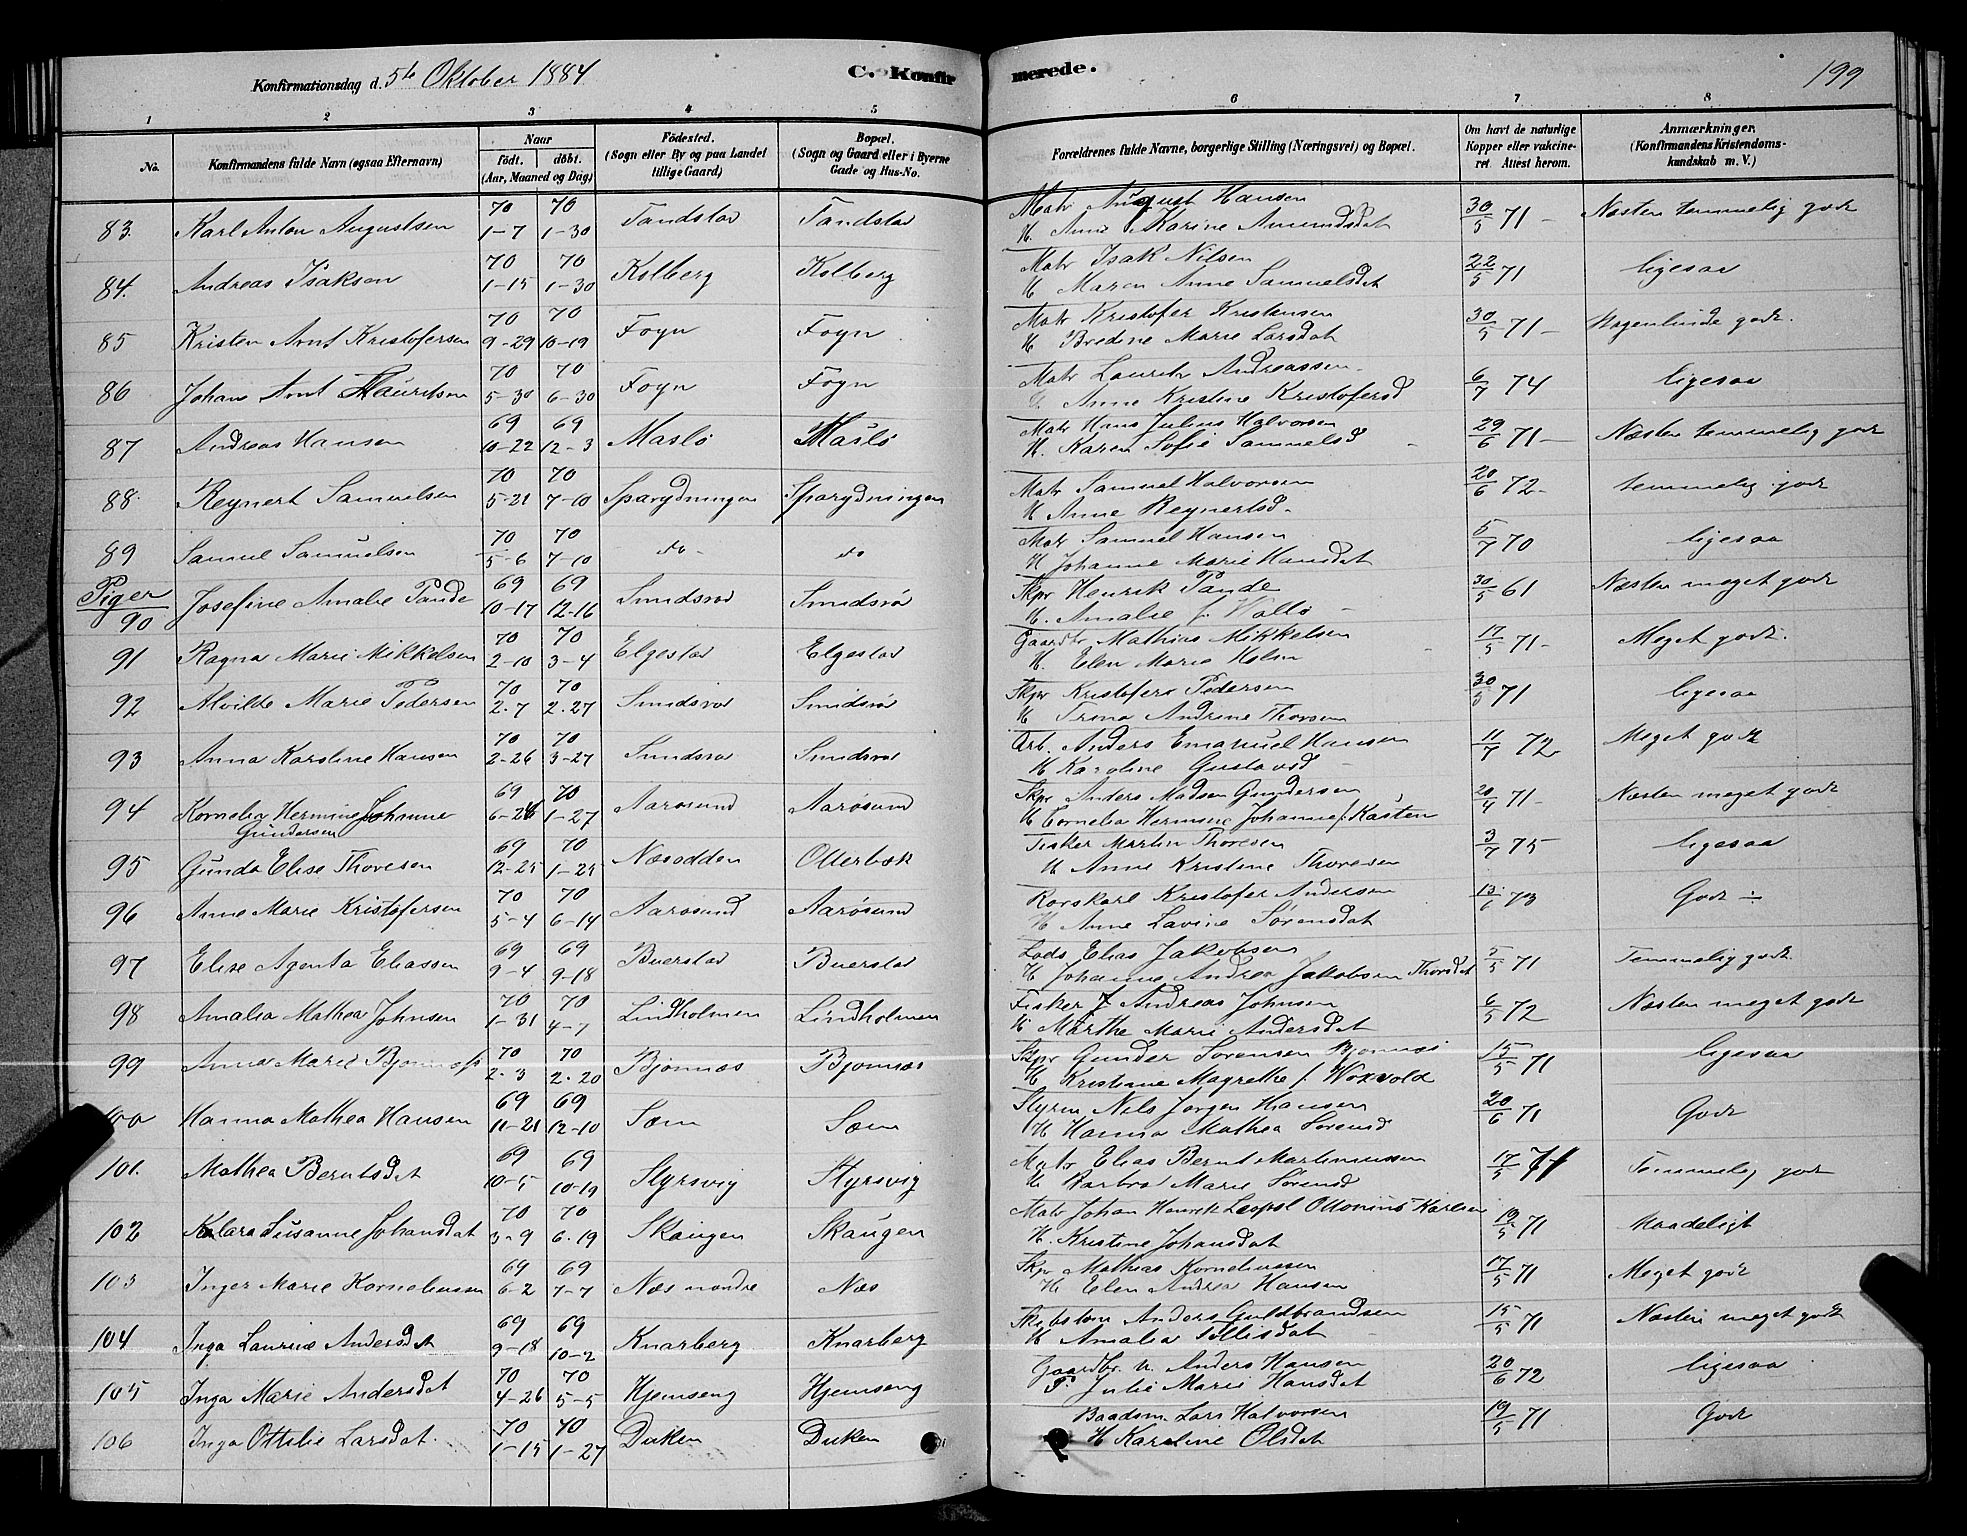 Konfirmationsdag d. 5te Oktober 1884 C. Konfirmerede. 199
1 2 3 4 5 6 7 8
No. Konfirmandens fulde Navn (ogsaa Efternavn) Naar födt. döbt. (Aar, Maaned og Dag) Födested. (Sogn eller By og paa Landet tillige Gaard) Bopæl. (Sogn og Gaard eller i Byerne Gade og Hus-No. Forældrenes fulde Navne, borgerlige Stilling (Næringsvei) og Bopæl. Om havt de naturlige Kopper eller vakcineret. Attest herom. Anmærkninger. (Konfirmandens Kristendomskundskab m. V.)
83. Karl Anton Augustsen 70 1-7 70 1-30 Tandstad Tandstad Matr August Hansen H. Anne Karine Amundsdat 30/5 71 - Næsten temmelig godt
84. Andreas Isaksen 70 1-15 70 1-30 Kolberg Kolberg Matr Isak Nilsen H Maren Anne Samuelsdat 22/5 71 ligesaa
85 Kristen Arnt Kristofersen 70 9-29 70 10-19 Foyn Foyn Matr Kristofer Kristensen H Bredine Marie Larsdat 30/5 71 - Nogenlunde godt.
86 Johans Arnt Lauritsen 70 5-30 70 6-30 Foyn Foyn Matr Lauritz Andreassen H. Anne Kristine Kristofersd 6/7 74 ligesaa
87 Andreas Hansen 69 10-22 69 12-3 Maslø Maslø Matr Hans Julius Halvorsen H. Karen Sofie Samuelsd 29/6 71 - Næsten temmelig godt
88. Reynert Samuelsen 70 5-21 70 7-10 Sparydningen Sparydningen Matr Samuel Halvorsen H Anne Reynertsd. 20/6 72 - temmelig godt
89 Samuel Samuelsen 70 5-6 70 7-10 do - do Matr Samuel Hansen H Johanne Marie Hansdat 5/7 70 ligesaa
Piger
90 Josefine Amalie Tande 69 10-17 69 12-16 Smidsrød Smidsrød Skpr Henrik Tande H. Amalie f. Vallø 30/5 61 Næsten meget godt
91 Ragna Marie Mikkelsen 70 2-10 70 3-4 Elgestad Elgestad Gaardbr Mathias Mikkelsen H. Elen Marie Holm 17/5 71 - Meget godt.
92 Alvilde Marie Pedersen 70 2-7 70 2-27 Smidsrød Smidsrød Skpr Kristofer Pedersen H Trina Andrine Thorsen 30/5 71 ligesaa
93 Anna Karoline Hansen 70 2-26 70 3-27 Smidsrød Smidsrød Arb. Anders Emanuel Hansen H Karoline Gustavsd 11/7 72 Meget godt
94 Kornelia Hermine Johanne Gundersen 69 6-26 70 1-27 Aarøsund Aarøsund Skpr Anders Madsen Gundersen H Cornelia Hermine Johanne f. Kasten 20/4 71 - Næsten meget godt
95 Gunda Elise Thoresen 69 12-25 70 1-25 Næsodden Otterbæk Fisker Martin Thoresen H Anne Kristine Thoresen 3/7 75 ligesaa
96 Anne Marie Kristofersen 70 5-4 70 6-14 Aarøsund Aarøsund Rorskarl Kristofer Andersen H Anne Lavine Sørensdat 13/6 73 Godt ÷
97 Elise Agenta Eliassen 69 9-4 69 9-18 Buerstad Buerstad Lods Elias Jakobsen H Johanne Andrea Jakobsen Thorsdat 5/5 71 Temmelig godt
98 Amalia Mathea Johnsen 70 1-31 70 4-7 Lindholmen Lindholmen Fisker J Andreas Johnsen H Marthe Marie Andersdat 6/5 72 Næsten meget godt
99 Anna Marie Bjønnæs 70 2-3 70 2-20 Bjønnæs Bjønnæs Skpr Gunder Sørensen Bjønnæs H Kristine Magrethe f. Woxvold 15/5 71 ligesaa
100 Hanna Mathea Hansen 69 11-21 69 12-10 Sæm Sæm Styrm Nils Jørgen Hansen H Hanna Mathea Sørensd 20/6 71 Godt
101. Mathea Berntsdat 69 10-5 69 10-19 Styrsvig Styrsvig Matr Elias Bernt Martinussen H Barbro Marie Sørensd 17/5 71 Temmelig godt
102 Klara Susanne Johansdat 70 3-9 70 6-19 Skaugen Skaugen Matr Johan Henrik Leopol Ottonius Karlsen H. Kristine Johansdat 19/5 71 Maadeligt
103 Inger Marie Korneliussen 69 6-2 69 7-7 Næs nordre Næs Skpr Mathias Korneliussen H Elen Andrea Hansen 17/5 71 Meget godt
104 Inga Laurine Andersdat 69 9-18 69 10-2 Knarberg Knarberg Skibstøm Anders Guldbrandsen H Amalia Tellisdat 15/5 71 Næsten meget godt
105 Inga Marie Andersdat 70 4-26 70 5-5 Hjemseng Hjemseng Gaardbr. u. Anders Hansen P. Julie Marie Hansdat 20/6 72 ligesaa
106 Inga Ottilie Larsdat. 70 1-15 70 1-27 Duken Duken Baadsm. Lars Halvorsen H Karoline Olsdat 19/5 71 Godt